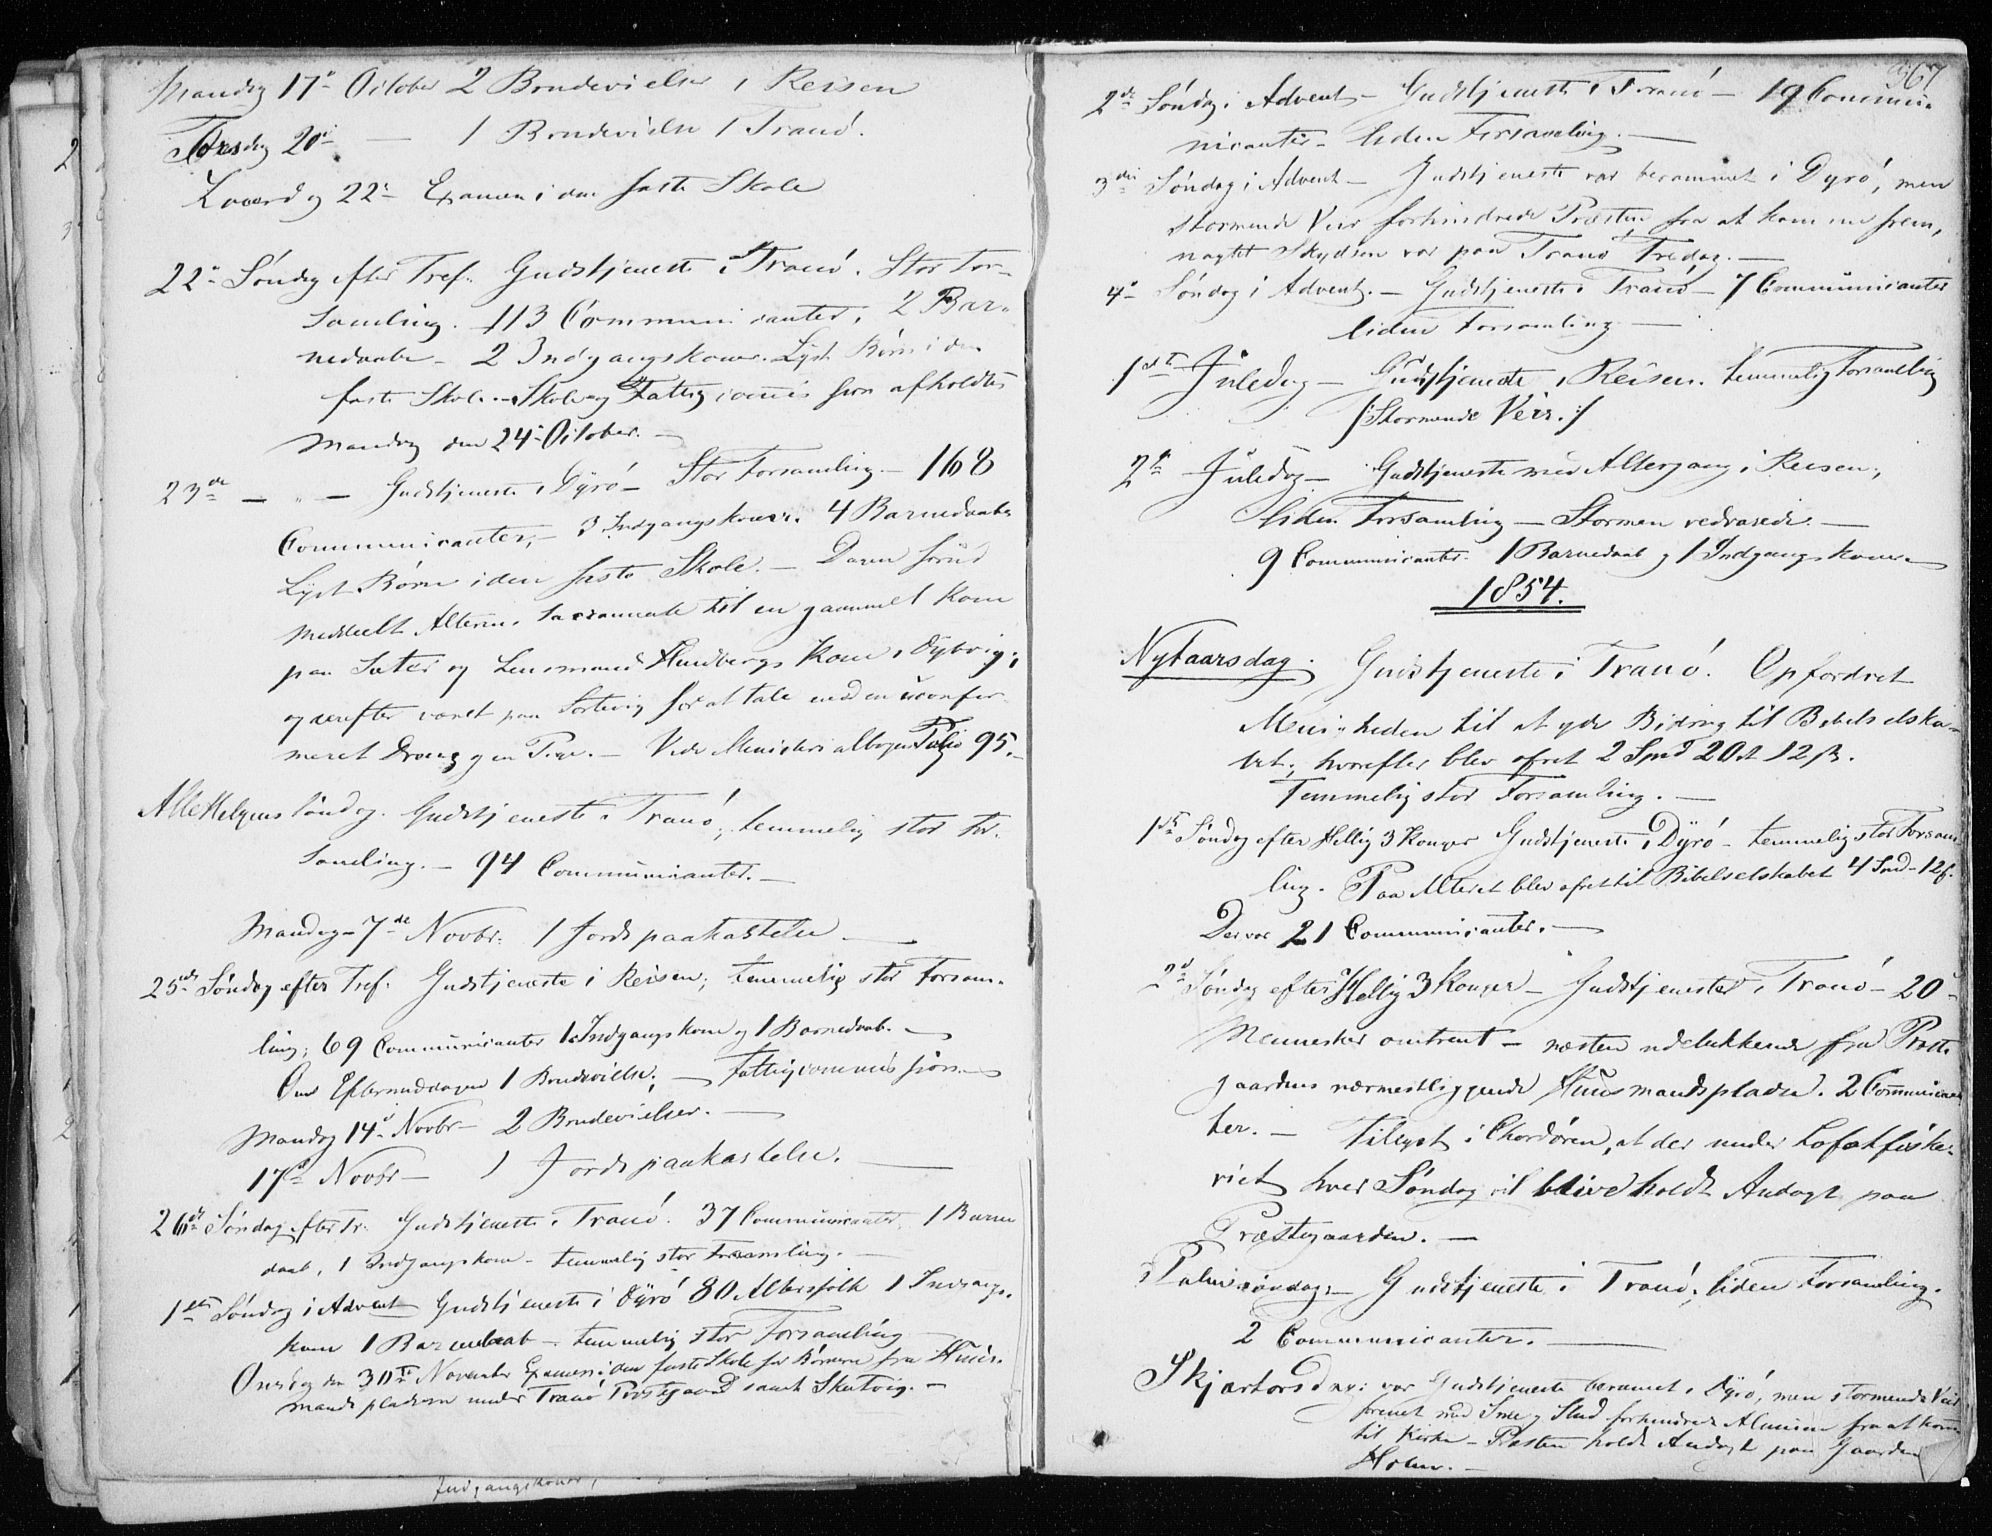 Mandag 17de October 2 Brudevielser i Reisen
Torsdag 20de — 1 Brudevielse i Tranö.
Løverdag 22de Examen i den faste Skole
22de Söndag efter Tref. Gudstjeneste i Tranö. Stor For-
samling. 113 Communicanter, 2 Bar-
nedaabe – 2 Indgangskoner. Lyst Börn i den
faste Skole. – Skole og Fattigcommission afholdtes
Mandag den 24de October. —
23de — " — Gudstjeneste i Dyrö – Stor Forsamling – 168
Communicanter, – 3 Indgangskoner. 4 Barnedaabe
Lyst Börn i den faste Skole. – Dagen forud
meddeelt Alterens Sacramente til en gammel Kone
paa Sæter og Lensmand Hundbergs Kone i Dybvig;
og derefter været paa Sörtevig for at tale med en uconfir-
meret Dreng og en Pige. – Vide Ministerialbogen Folio 95. –
Alle Helgens Söndag. Gudstjeneste i Tranö, temmelig stor For-
samling. – 94 Communicanter. –
Mandag 7de Novbr. 1 Jordpaakastelse —
25de Söndag efter Tref. Gudstjeneste i Reisen; temmelig stor Forsam-
ling; 69 Communicanter 1 Indgangskone og 1 Barnedaab. —
Om Eftermiddagen 1 Brudevielse; — Fattigcommission —
Mandag 14de Novbr – 2 Brudevielser. —
17de Novbr – 1 Jordpaakastelse. —
26de Söndag efter Tr. Gudstjeneste i Tranö. 37 Communicanter, 1 Barne
daab, 1 Indgangskone – temmelig stor Forsamling. —
1ste Söndag i Advent Gudstjeneste i Dyrö 80 Altersfolk 1 Indgangs-
kone 1 Barnedaab – temmelig stor Forsamling
Onsdag den 30te November Examen i den faste Skole for Börnene fra Huus-
mandspladsene under Tranö Præstegaard samt Skutvig. –
Indgangskoner,
367
2den Söndag i Advent – Gudstjeneste i Tranö – 19 Commu-
nicanter – liden Forsamling. —
3die Söndag i Advent – Gudstjeneste var berammet i Dyrö, men
stormende Veir forhindrede Præsten fra at komme frem,
uagtet Skydsen var paa Tranö Fredag. —
4de Söndag i Advent. – Gudstjeneste i Tranö – 7 Communicanter
liden Forsamling —
1ste Juledag – Gudstjeneste i Reisen. temmelig Forsamling
/: Stormende Veir. :/
2den Juledag – Gudstjeneste med Altergang i Reisen;
liden Forsamling – Stormen vedvarede. —
9 Communicanter. 1 Barnedaab og 1 Indgangskone. —
1854.
Nytaarsdag. Gudstjeneste i Tranö. Opfordret
Menigheden til at yde Bidrag til Bibelselska-
bet; hvorefter blev ofret 2 Spd 2 Ort 12 ß.
Temmelig stor Forsamling. —
1ste Söndag efter Hellig 3 Konger Gudstjeneste i Dyrö – temmelig stor Forsam
ling. Paa Alteret blev ofret til Bibelselskabet 4 Spd – 12 ß.
Der var 21 Communicanter. —
2den Söndag efter Hellig 3 Konger – Gudstjeneste i Tranö – 20
Mennesker omtrent – næsten udelukkende fra Præste
gaardens nærmestliggende Huusmandspladse. 2 Communican
ter. – Tillyst i Chordören, at der under Lofotfiske-
riet hver Söndag vil blive holdt Andagt paa
Præstegaarden. —
Palmesöndag – Gudstjeneste i Tranö; liden Forsamling.
2 Communicanter. —
Skjærtorsdag: var Gudstjeneste beramet i Dyrö, men stormende Veir
forenet med Snee og Slud forhindrede Almuen fra at komme
til Kirke – Præsten holdt Andagt paa Gaarden
Holm. –